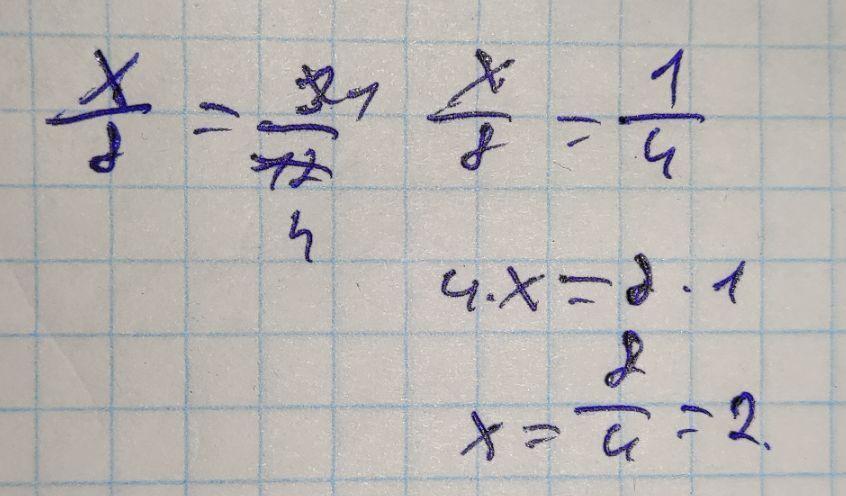 x/8 = 3/12 1/4 x/8 = 1/4
4·x = 8·1
x = 8/4 = 2.